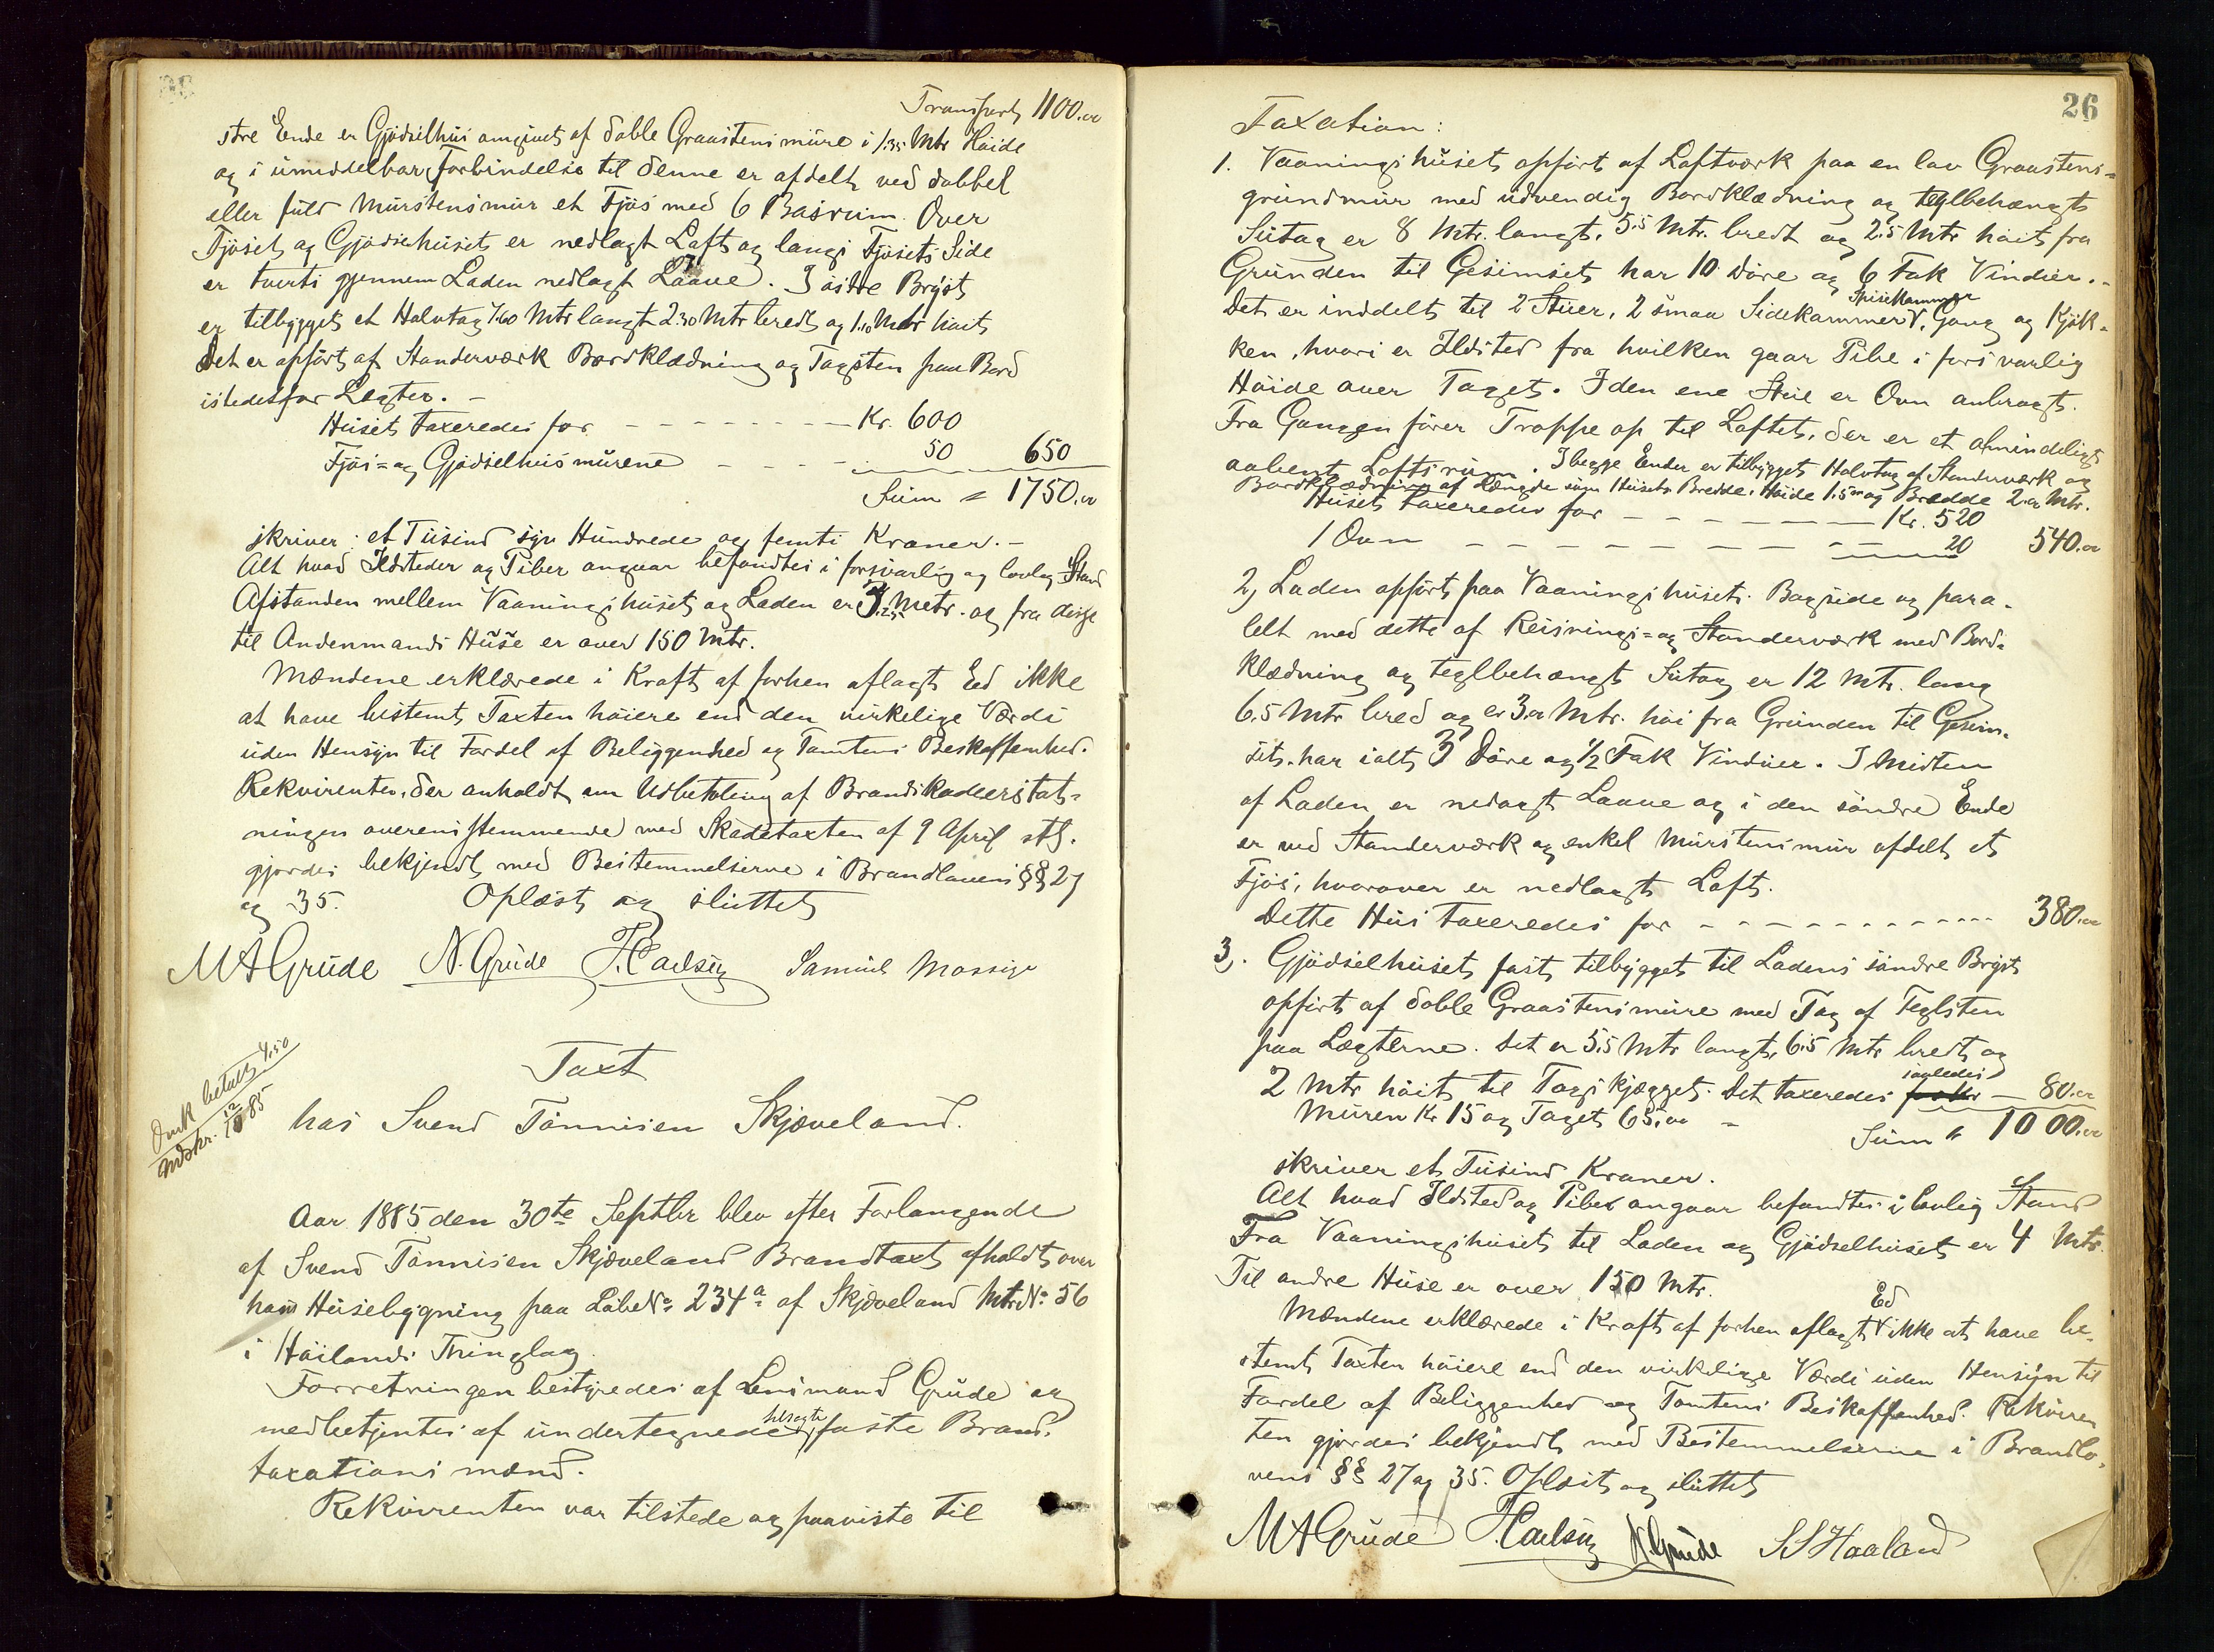 Transport 1100.00
stre Ende er Gjødselhus omgivet af doble Graastensmure i 1.35 Mtr Høide
og i umiddelbar Forbindelse til denne er afdelt ved dobbel
eller fuld Murstensmur et Fjøs med 6 Baasrum. Over
Fjøset og Gjødselhuset er nedlagt Loft og langs Fjøsets Side
er tverts gjennem Laden nedlagt Laave. I østre Bryst
er tilbygget et Halvtag 7.60 Mtr langt 2.30 Mtr bredt og 1.10 Mtr høit,
Det er opført af Standerværk Bordklædning og Tagsten paa Bord
istedetfor Legter. –
Huset taxeredes for – – – – – – – – Kr. 600
Fjøs= og Gjødselhusmurene – – – – 50 650
Sum " 1750.00
skriver: et Tusind syv Hundrede og femti Kroner. –
Alt hvad Ildsteder og Piber angaar befandtes i forsvarlig og lovlig Stand
Afstanden mellem Vaaningshuset og Laden er 3.25 Metr. og fra disse
til Andenmands Huse er over 150 Mtr.
Mændene erklærede i Kraft af forhen aflagt Ed ikke
at have bestemt Taxten høiere end den virkelige Værdi
uden Hensyn til Fordel af Beliggenhed og Tomtens Beskaffenhed.
Rekvirenten, der anholdt om Udbetaling af Brandskadeerstat=
ningen overensstemmende med Skadetaxten af 9 April st.
gjordes bekjendt med Bestemmelserne i Brandlovens §§ 27
og 35. Oplæst og sluttet
M A Grude N. Grude Samuel Mossige
Taxt
Omk betalt 4.50
Indskr. 12/10 85
hos Svend Tønnisen Skjæveland.
Aar 1885 den 30te Septbr blev efter Forlangende
af Svend Tønnisen Skjæveland Brandtaxt afholdt over
hans Husebygning paa LøbeNo 234a af Skjæveland MtrNo 56
i Høilands Thinglag.
Forretningen bestyredes af Lensmand Grude og
medbetjentes af undertegnede faste Brand=
taxationsmænd.
Rekvirenten var tilstede og paaviste til
26
Taxation:
1. Vaaningshuset opført af Loftværk paa en lav Graastens=
grundmur med udvendig Bordklædning og teglbehængt
Sutag er 8 Mtr. langt, 5.5 Mtr. bredt og 2.5 Mtr høit fra
Grunden til Gesimset har 10 Døre og 6 Fak Vinduer. –
Det er inddelt til 2 Stuer, 2 smaa Sidekammer, Spisekammer Gang og Kjøk=
ken, hvori er Ildsted fra hvilken gaar Pibe i forsvarlig
Høide over Taget. I den ene Stue er Ovn anbragt.
Fra Gangen fører Trappe op til Loftet, der er et almindeligt
aabent Loftsrum. I begge Ender er tilbygget Halvtag af Standerværk og
Bordklædning af Længde som Husets Bredde, Høide 1.5 og Bredde 2.0 Mtr.
Huset taxeredes for – – – – – – – Kr. 520
1 Ovn – – – – – – – – – 20 540.00
2, Laden opført paa Vaaningshusets Bagside og para=
lelt med dette af Reisnings= og Standerværk med Bord=
klædning og teglbehængt Sutag er 12 Mtr. lang
6.5 Mtr bred og er 3.0 Mtr. høi fra Grunden til Gesim=
set, har ialt 3 Døre og 1/2 Fak Vinduer. I Midten
af Laden er nedlagt Laave og i den søndre Ende
er ved Standerværk og enkel Murstensmur afdelt et
Fjøs, hvorover er nedlagt Loft.
Dette Hus taxeredes for – – – – – – – – – – 380.00
3,. Gjødselhuset fast tilbygget til Ladens søndre Bryst
opført af doble Graastensmure med Tag af Teglsten
paa Lægterne. Det er 5.5 Mtr langt, 6.5 Mtr bredt og
2 Mtr høit til Tagskjægget. Det taxeredes saaledes – 80.00
Muren Kr 15 og Taget 65.00 –
Sum " 1000.00
skriver et Tusind Kroner.
Alt hvad Ildsted og Piber angaar befandtes i lovlig Stand
Fra Vaaningshuset til Laden og Gjødselhuset er 4 Mtr.
Til andre Huse er over 150 Mtr.
Mændene erklærede i Kraft af forhen aflagt Ed ikke at have be=
stemt Taxten høiere end den virkelige Værdi uden Hensyn til
Fordel af Beliggenhed og Tomtens Beskaffenhed. Rekviren
ten gjordes bekjendt med Bestemmelserne i Brandlo=
vens §§ 27 og 35. Oplæst og sluttet
M A Grude N. Grude S S Haaland